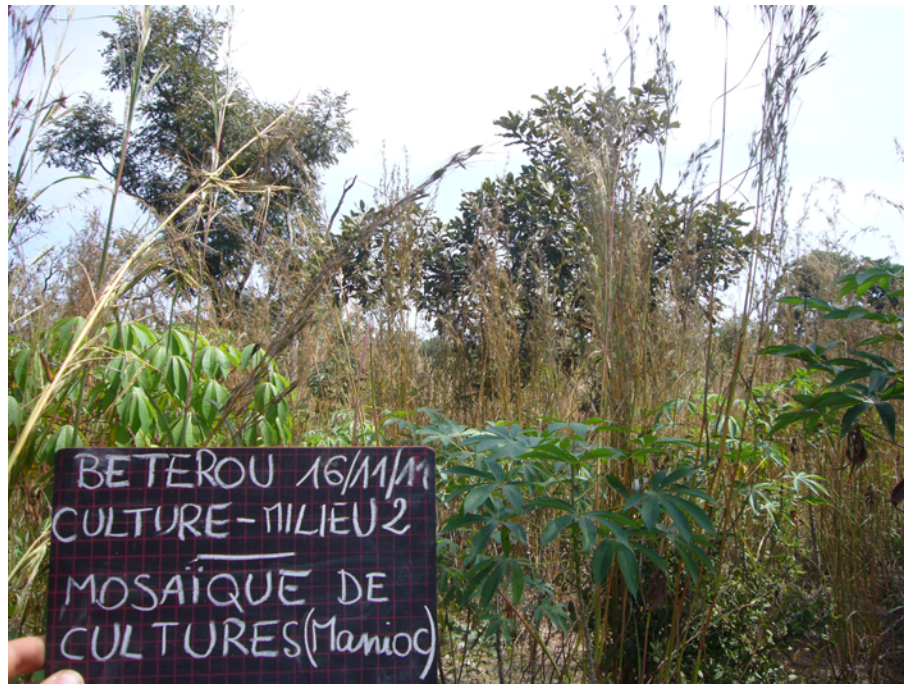 BETEROU 16/11/11
CULTURE-MILIEU 2
MOSAÏQUE DE
CULTURES (Manioc)